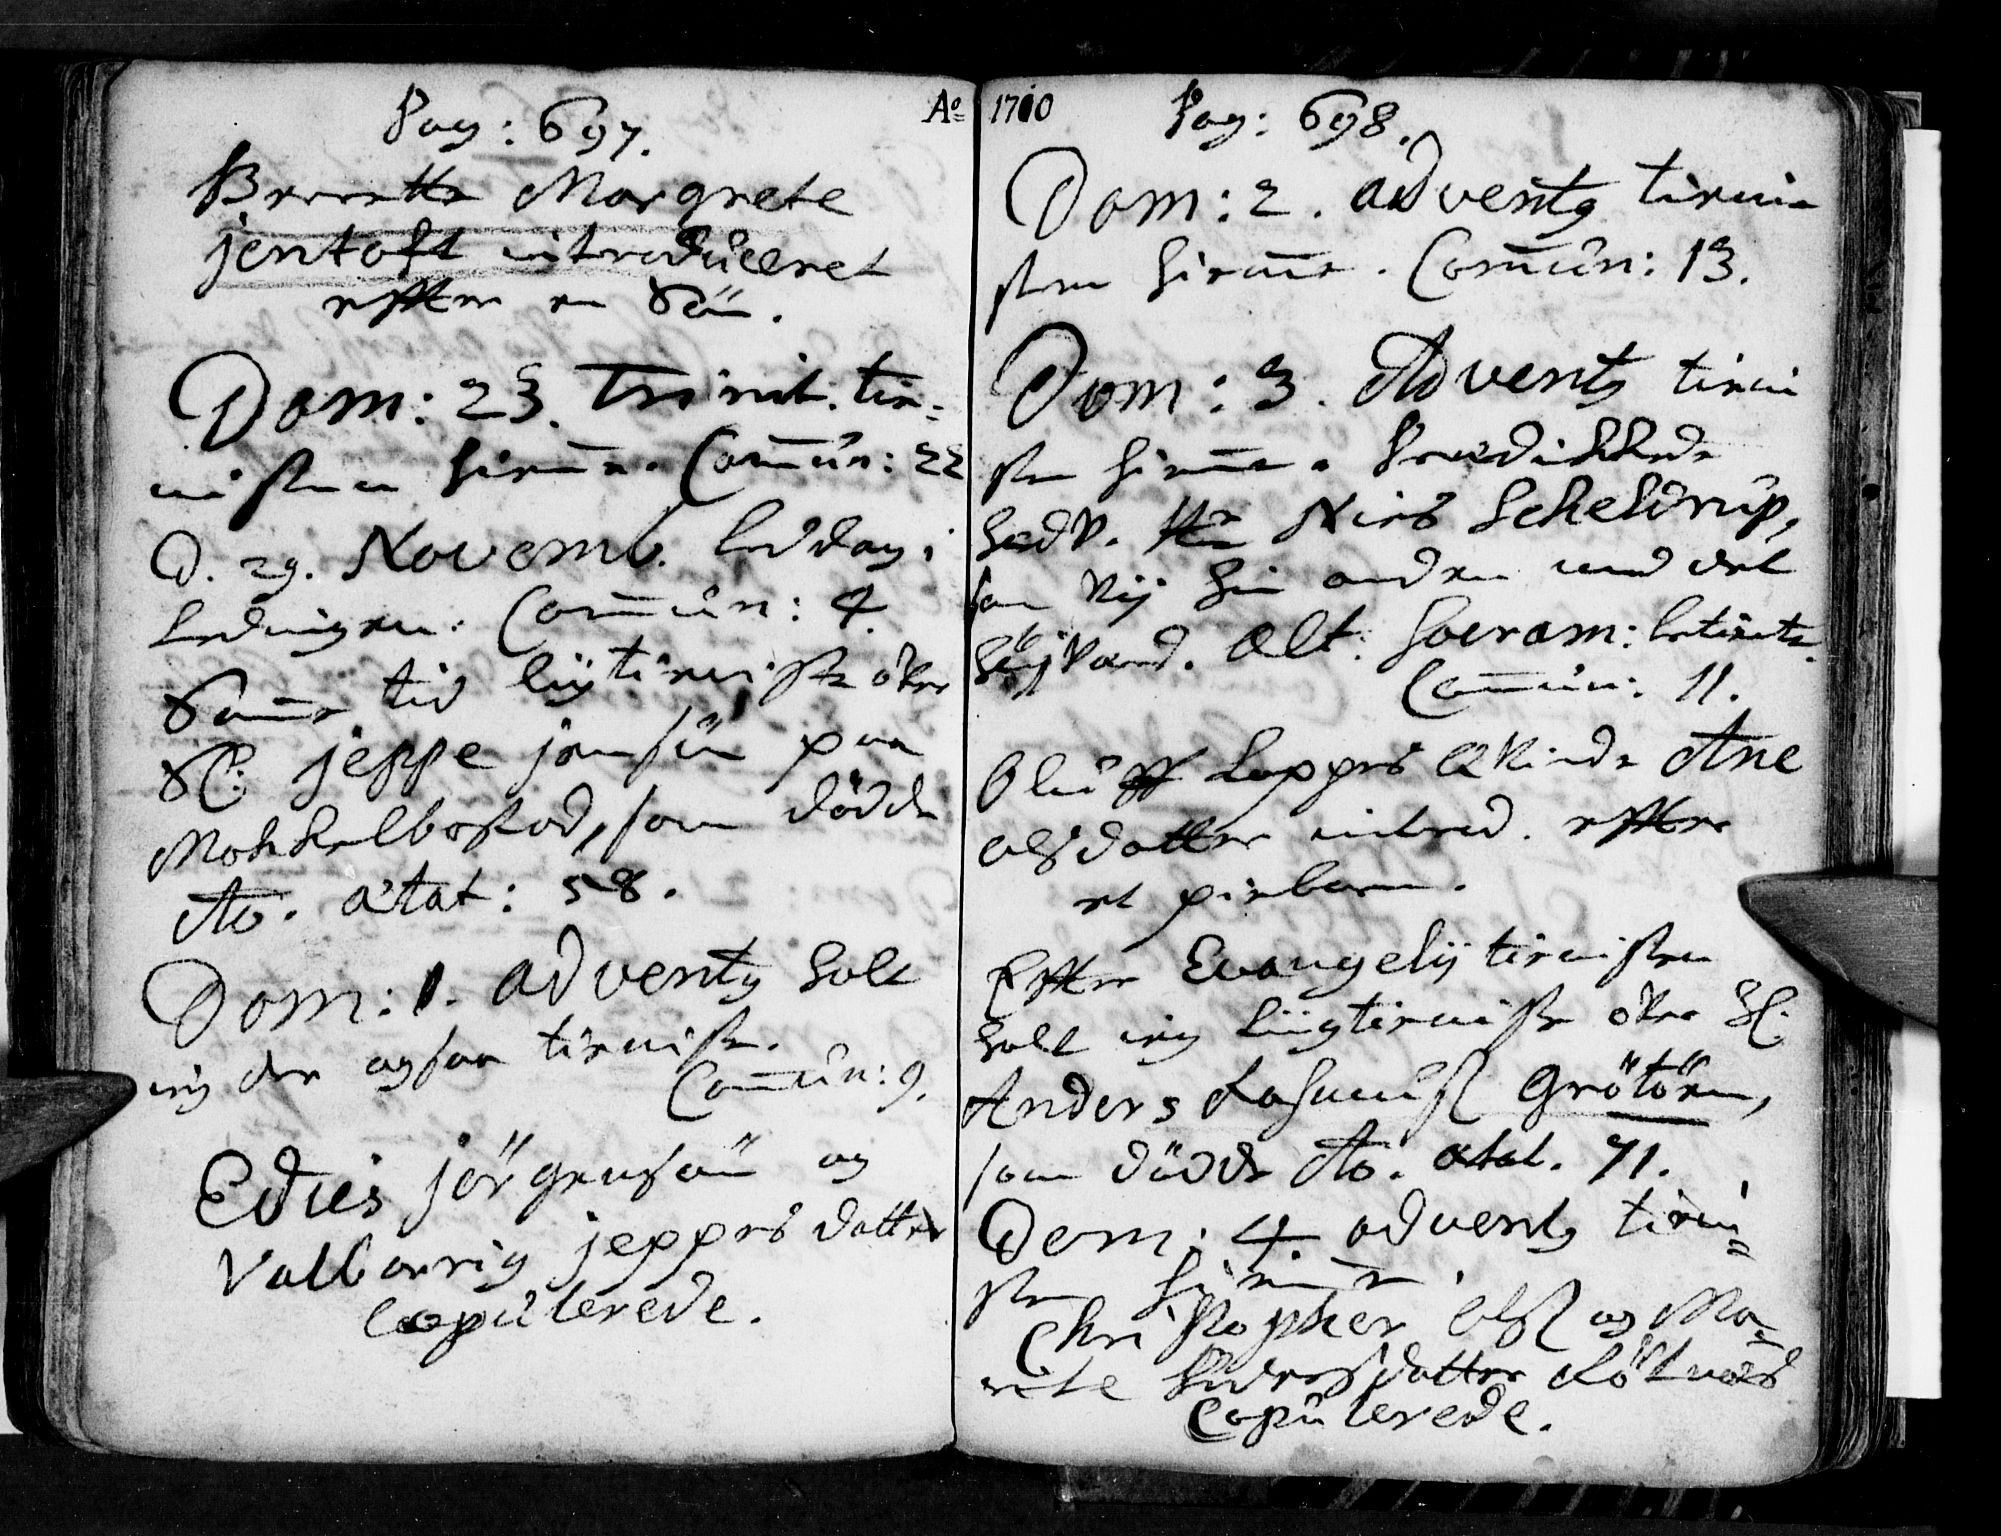 Pag: 697.
Berette Margrete
jentoft introduceret
effter en Sön.
Dom: 23. Trinit. tie-
nisten hiemme. Comun: 22
D. 29. Novemb. bededag i
Lødingen. Comun: 4.
Samme tid liigtieniste over
Sl. jeppe jensön paa
Mokkelbostad, som döde
Ao. ætat: 58.
Dom: 1. advents holt
ieg der ogsaa tieniste.
Comun: 9.
Edvis jörgensön og
Valborrig jeppes datter
Copulerede.
Ao 1710
Pag: 698.
Dom: 2. advents tieni-
sten hiemme. Comun: 13.
Dom: 3. Advents tieni
sten hiemme. Prædikkede
hr Niels Scheldrup,
som hin anden med det
Alt. Sacram: betiente.
Comun: 11.
Oluff Lappes Qvinde Ane
olsdatter introd. effter
et pigebarn.
Effter Evangelij tienisten
holt ieg liigtieniste over Sl.
Anders Rasmuss Grötöen,
som döde Ao. ætat. 71.
Dom: 4. advents tieni-
sten hiemme.
Christopher Olss og Ma-
rite datter
Copulerede.